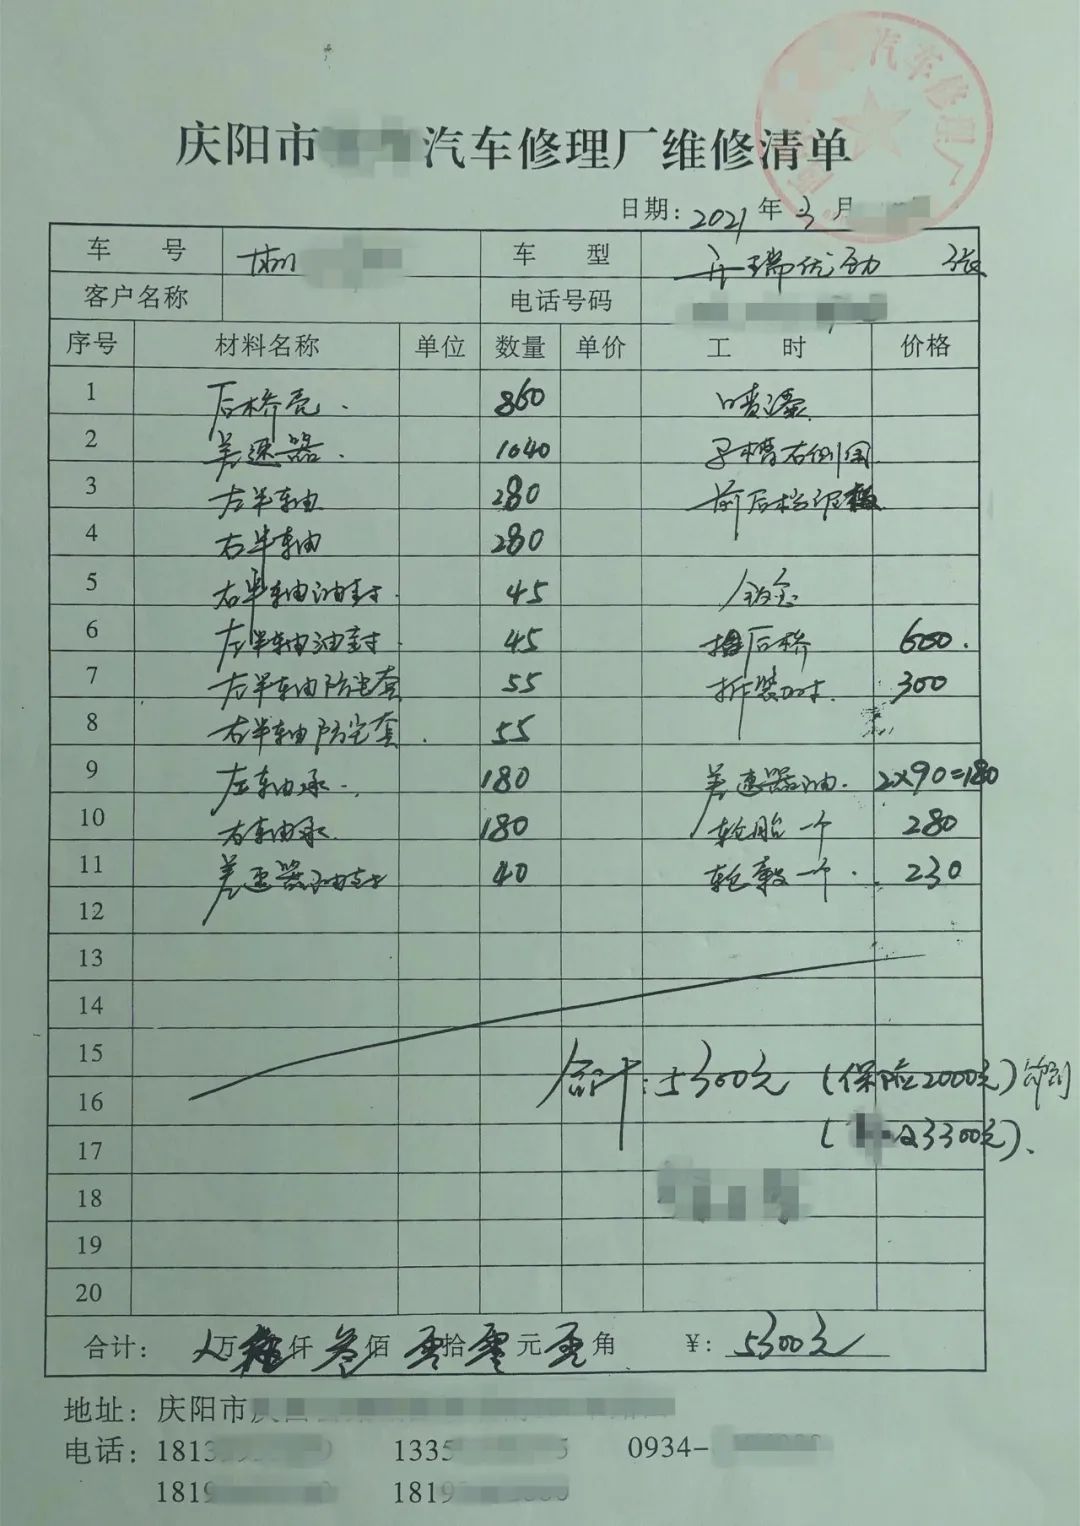 汽车修理厂
庆阳市 汽车修理厂维修清单
日期: 2021年3月
车号 车型 瑞优劲
客户名称 电话号码
序号 材料名称 单位 数量 单价 工时 价格
1 后桥壳. 860 喷漆
2 差速器. 1040 右侧
3 左半轴 280 前后
4 右半轴 280
5 右半轴油封. 45 钣金
6 左半轴油封. 45 后桥 600.
7 左半轴防尘套 55 拆装 300
8 右半轴防尘套. 55
9 左轴承. 180 差速器油. 2×90=180
10 右轴承. 180 轮胎一个 280
11 差速器油封 40 轮毂一个. 230
12
13
14
15
合计:5300元 (保险2000元)
16
( 3300元).
17
18
19
20
合计: 万 仟叁佰零拾零元零角 ¥: 5300元
地址: 庆阳市
电话: 1813 1335 0934-
1819 1819